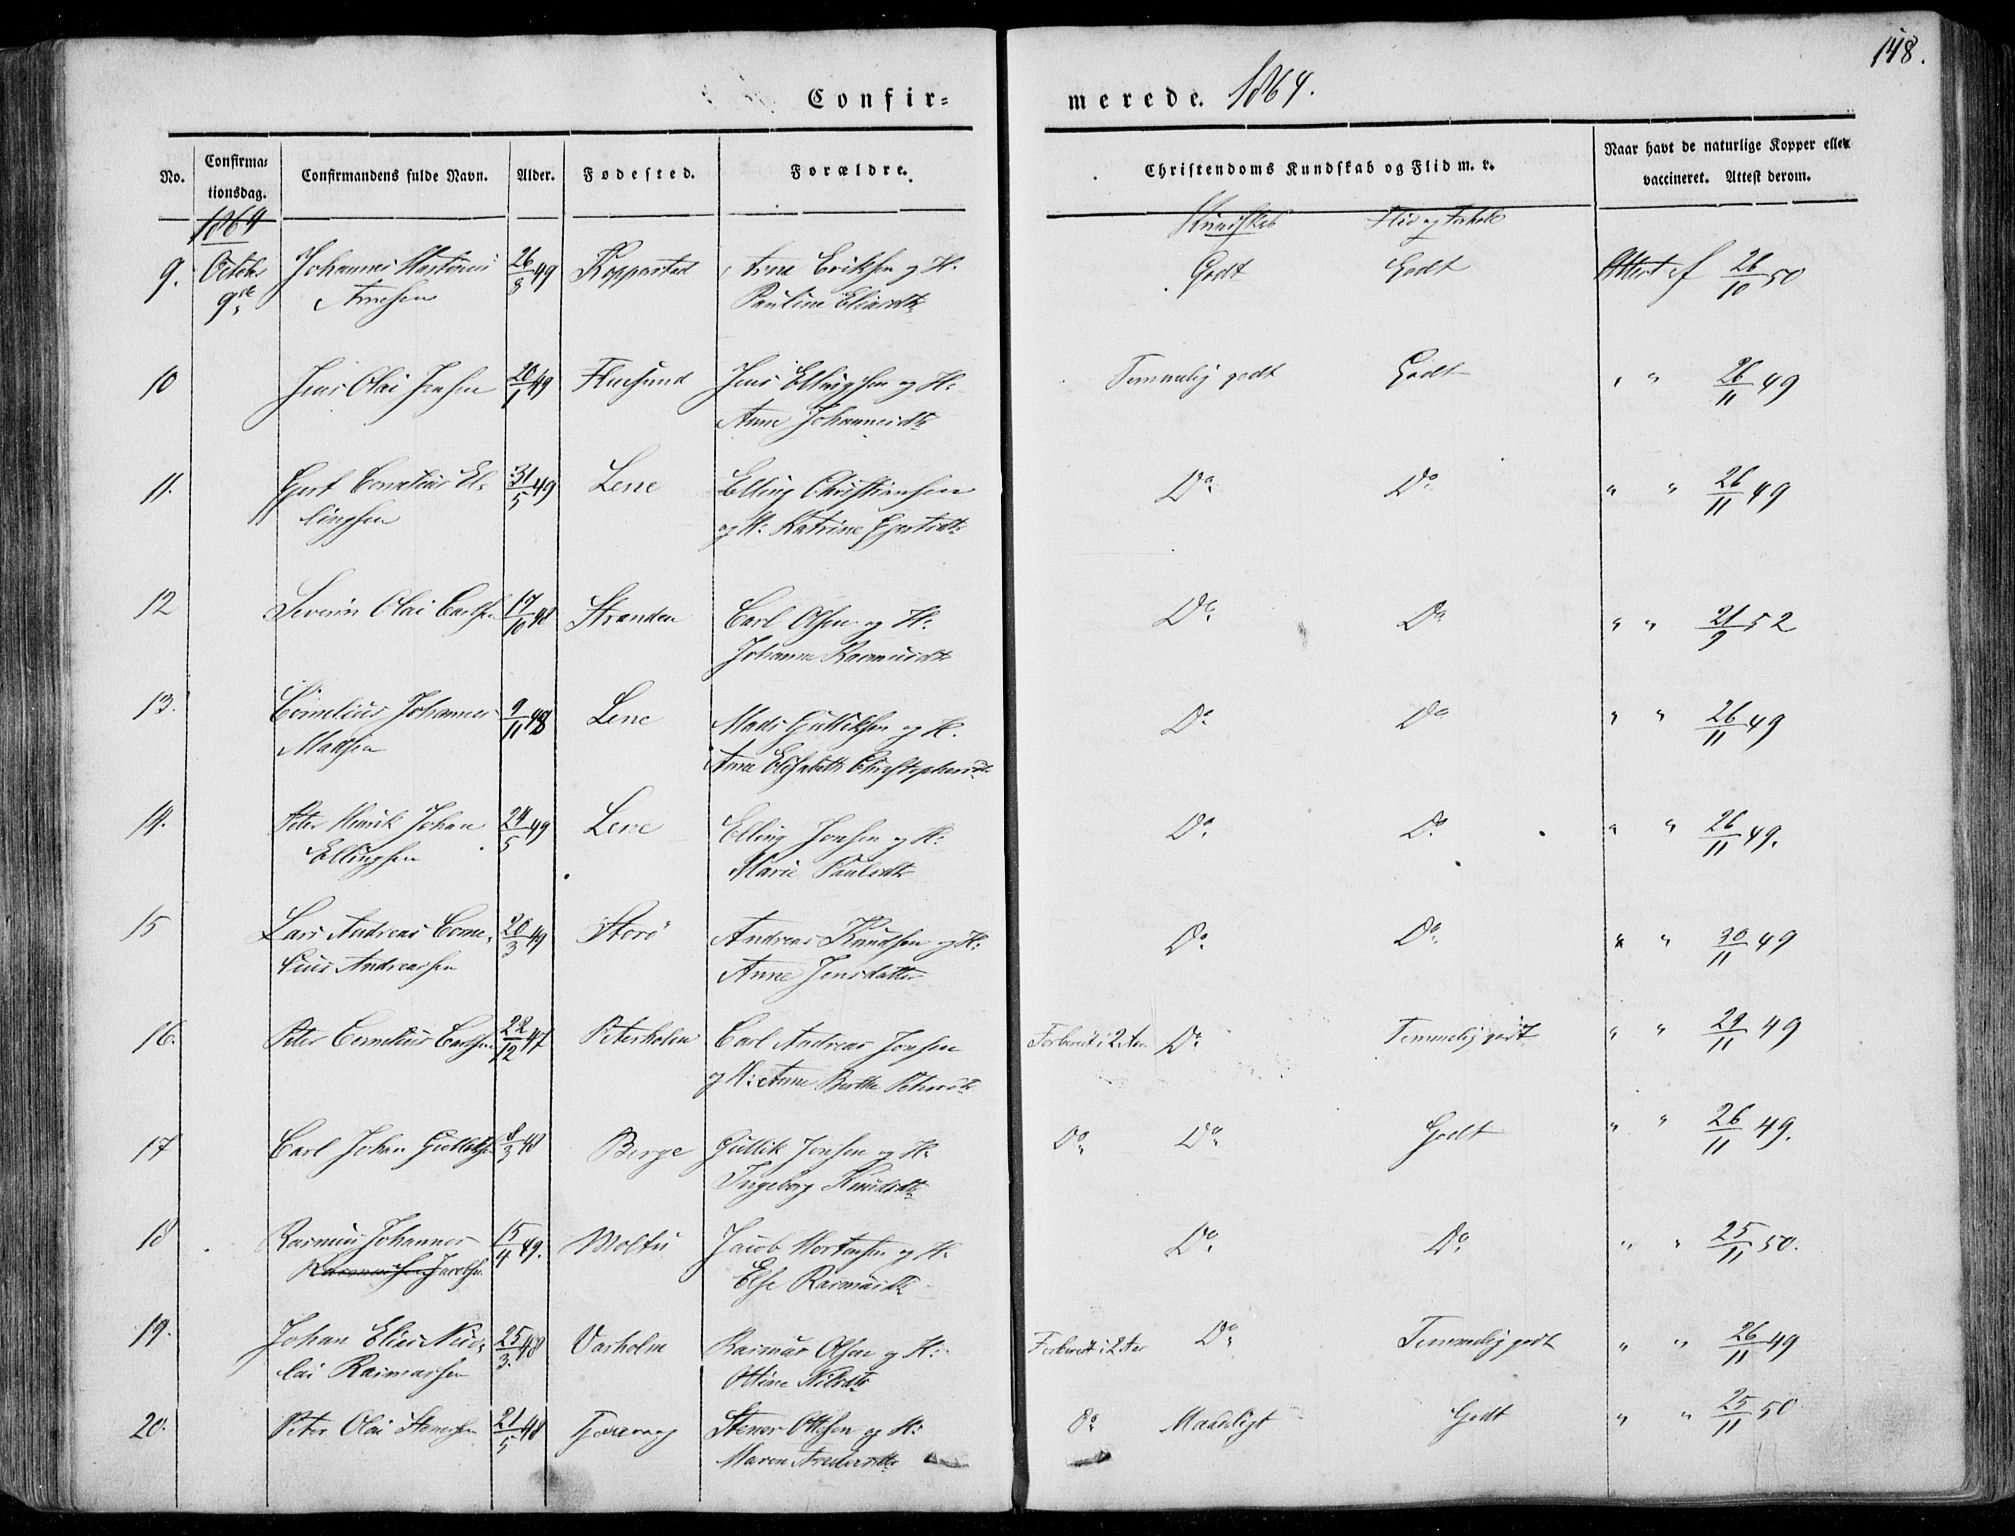 148.
Confir=
merede. 1864.
No. Confirma= tionsdag. Confirmandens fulde Navn. Alder. Fødested. Forældre. Christendoms Kundskab og Flid m. v. Naar havt de naturlige Kopper eller vaccineret. Attest derom.
1864 Kundskab Flid og Forhold
9. October Johannes Martinus 26/3 49 Koppestad Arne Eriksen og H: Godt Godt Attest af 26/10 50
9de Arnesen Pauline Eliasdtr
10 Jens Olai Jensen 20/1 49 Fluesund Jens Ellingsen og H: Temmelig godt Godt " " 26/11 49
Anne Johannesdtr
11. Gjert Cornelius El= 31/5 49 Lene Elling Christiansen Do Do " " 26/11 49
lingsen og H: Katrine Gjertsdtr
12 Severin Olai Carlsen 17/10 48 Stranden Carl Olsen og H: Do Do " " 21/9 52
Johanne Rasmusdtr
13. Cornelius Johannes 9/11 48 Lene Mads Gulliksen og H: Do Do " " 26/11 49
Madsen Anne Elisabeth Christophersdtr
14. Peter Henrik Johan 24/5 49 Lene Elling Jonsen og H: Do Do " " 26/11 49.
Ellingsen Marie Paulsdtr
15 Lars Andreas Corne= 20/3 49 Storö Andreas Knudsen og H: Do Do " " 30/11 49
lius Andreassen Anne Jensdatter
16. Peter Cornelius Carlsen 22/12 47 Peterholm Carl Andreas Jonsen Forberedt i 2 Aar Do Temmelig godt " " 29/11 49
og H: Anne Berthe Petersdtr
17 Carl Johan Gulliksen 8/3 48 Berge Gullik Jonsen og H: Do Do Godt " " 26/11 49.
Ingeborg Knudsdtr
18 Rasmus Johannes 15/4 49. Moltu Jacob Mortensen og H: Do Do " " 25/11 50.
Rasmussen Jacobsen Else Rasmusdtr
19. Johan Elias Nico= 25/3 48 Vasholm Rasmus Olsen og H: Forberedt i 2 Aar Do Temmelig godt " " 26/11 49
lai Rasmussen Ottine Nilsdtr
20. Peter Olai Stenersen 21/5 48 Tjørvaag Stener Ottesen og H: Do Maadeligt Godt " " 25/11 50
Maren Andersdtr